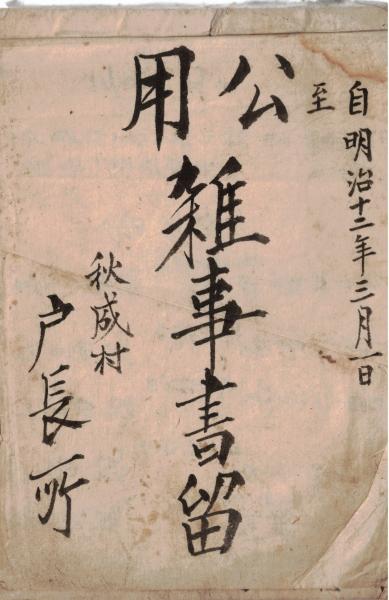 自明治十二年三月一日
至
公用
雑事書留
秋成村
戸長所